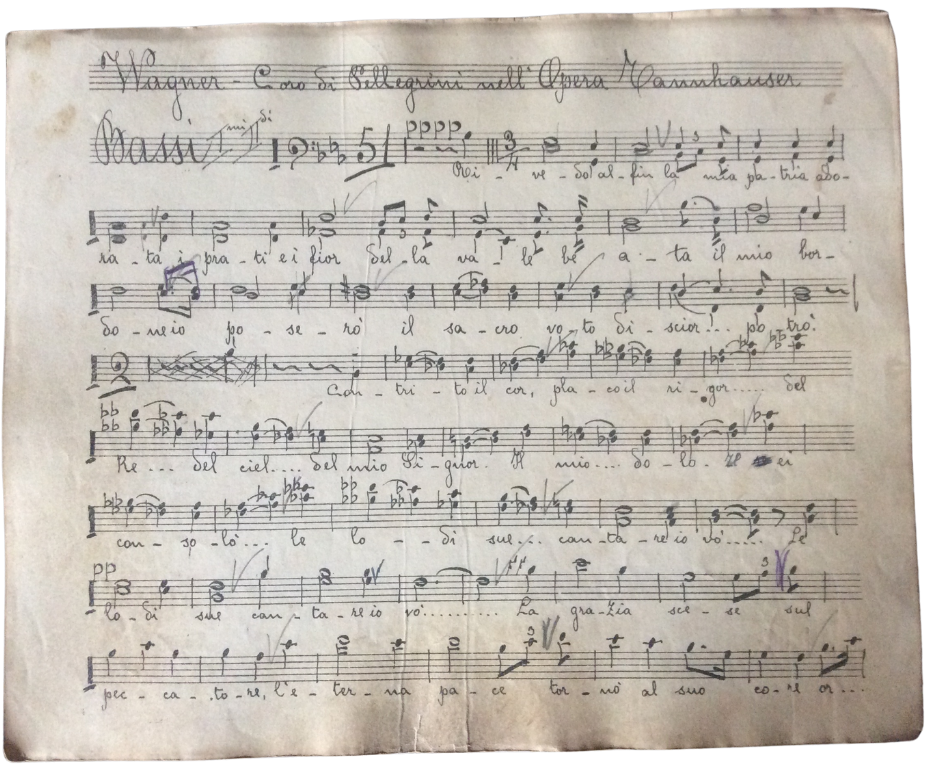 Wagner - Coro di Pellegrini nell' Opera Tannhauser
Bassi I mi II di 51 pppp 3/4
Ri - ve - do al - fin la mia pa - tria ado -
ra - ta i pra - ti e i fior del - la va - le be a - ta il mio bor -
do - ne io po - se - rò il sa - cro vo - to di - scior... po - trò.
2
Con - tri - to il cor, pla - co il ri - gor..... del
Re... del ciel.... del mio Si - gnor. Il mio.... do - lo - ei
con - so - lò... le lo - - di sue... can - ta - re io vo'..... Le
pp
lo - di sue can - ta - re io vo'.......... La gra - zia sce - se sul
pec - ca - to - re, l'e - ter - na pa - ce tor - nò al suo co - re or...